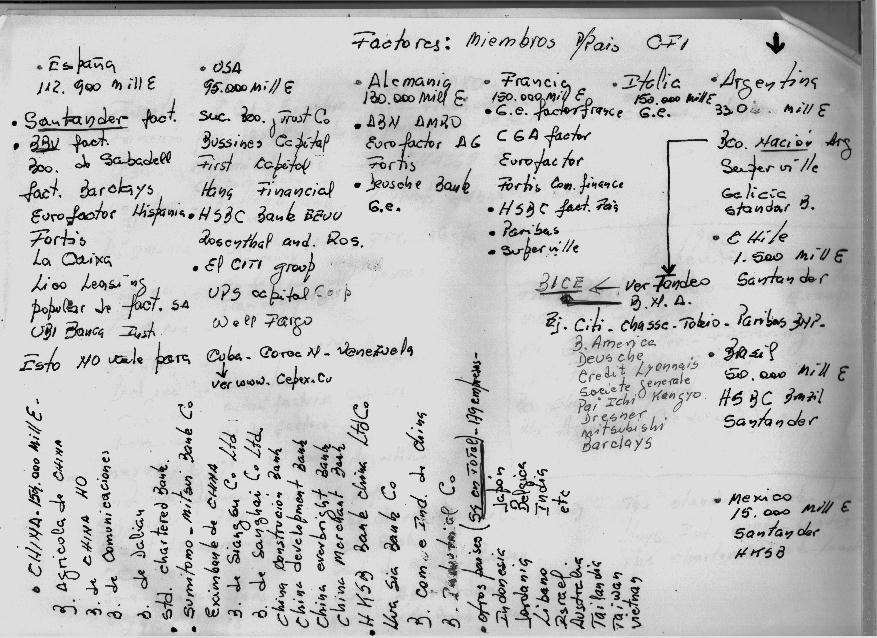 Factores: Miembros p/Pais CFI
• España
112.900 Mill E
• Santander fact.
• BBV fact.
Bco. de Sabadell
fact. Barclays
Eurofactor Hispania
Fortis
La Caixa
Lico Leasing
popular de fact. SA
UBI Banca Inst
Esto NO vale para Cuba - Corea N - Venezuela
ver www. Cepex.cu
• USA
95.000 Mill E
Suc. Bco. Trust Co
Bussines Capital
First Capital
Hana Financial
• HSBC Bank EEUU
Rosenthal and. Ros.
• El CITI group
UPS capital Corp
Well Fargo
• Alemania
130.000 Mill E
• ABN AMRO
Eurofactor AG
Fortis
• Deusche Bank
G.e.
• Francia
150.000 Mill E
• G.e. factorfrance
CGA factor
Eurofactor
Fortis Com. finance
• HSBC fact. Pais
• Paribas
• Superville
• Italia
150.000 Mill E
G.e.
• Argentina
330 Mill E
Bco. Nacion Arg
Superville
Galicia
standar B.
• CHile
1.500 Mill E
Santander
BICE ← ver Fondeo
B.N.A.
Ej. Citi - Chasse - Tokio - Paribas BNP -
B. America
Deusche
Credit Lyonnais
Societe generale
Dai Ichi Kangyo
Dresner
Mitsubishi
Barclays
• Brasil
50.000 Mill E
HSBC Brazil
Santander
• Mexico
15.000 Mill E
Santander
HKSB
• CHINA - 154.000 Mill E -
B. Agricola de CHINA
B. de CHINA HO
B. de Comunicaciones
B. de Dalian
• Std. chartered Bank.
• Sumitomo - mitsui Bank Co
Eximbank de CHINA
B. de Jiangsu Co Ltd
B. de Sanghai Co Ltd.
China Construcion Bank
China development Bank
China everbright Bank
China Merchant Bank
• HKSB Bank china Ltd Co
Hua Sia Bank Co
B. Com e Ind. de China
B. Industrial Co
• otros paises (59 en TOTAL) - 179 empresas -
Indonesia
Jordania
Libano
Israel
Australia
Tailandia
Taiwan
Vietnan
Japon
Belgica
India
etc